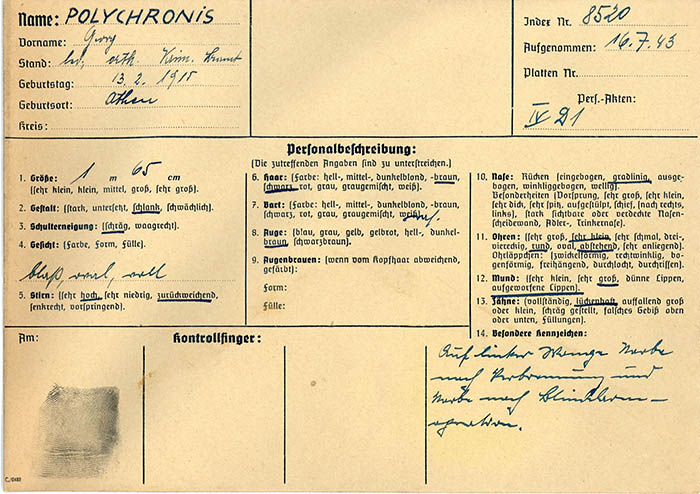 Name: POLYCHRONIS
Vorname: Georg
Stand: led., orth.
Geburtstag: 13. 2. 1915
Geburtsort: Athen
Kreis:
Index Nr. 8520
Aufgenommen: 16.7.43
Platten Nr.
Pers.-Akten:
IV D1
Personalbeschreibung:
(Die zutreffenden Angaben sind zu unterstreichen.)
1. Größe: 1 m 65 cm
(sehr klein, klein, mittel, groß, sehr groß).
2. Gestalt: (stark, untersetzt, schlank, schwächlich).
3. Schulterneigung: (schräg, waagrecht).
4. Gesicht: (Farbe, Form, Fülle).
blaß, oval, voll
5. Stirn: (sehr hoch, sehr niedrig, zurückweichend,
senkrecht, vorspringend).
6. Haar: (Farbe: hell-, mittel-, dunkelblond, -braun,
schwarz, rot, grau, graugemischt, weiß).
7. Bart: (Farbe: hell-, mittel-, dunkelblond, -braun,
schwarz, rot, grau, graugemischt, weiß).
8. Auge: (blau, grau, gelb, gelbrot, hell-, dunkel-
braun, schwarzbraun).
9. Augenbrauen: (wenn vom Kopfhaar abweichend,
gefärbt):
Form:
Fülle:
10. Nase: Rücken (eingebogen, gradlinig, ausge-
bogen, winkliggebogen, wellig).
Besonderheiten (Vorsprung, sehr groß, sehr klein,
sehr dick, sehr spitz, aufgestülpt, schief, nach rechts,
links), stark sichtbare oder verdeckte Nasen-
scheidewand, Adler-, Trinkernase).
11. Ohren: (sehr groß, sehr klein, sehr schmal, drei-,
viereckig, rund, oval, abstehend, sehr anliegend).
Ohrläppchen: (zwickelförmig, rechtwinklig, bo-
genförmig, freihängend, durchlocht, durchrissen).
12. Mund: (sehr klein, sehr groß, dünne Lippen,
aufgeworfene Lippen).
13. Zähne: (vollständig, lückenhaft, auffallend groß
oder klein, schräg gestellt, falsches Gebiß oben
oder unten, Füllungen).
14. Besondere Kennzeichen:
Auf linker Wange Narbe
nach Verbrennung und
Narbe nach Blinddarm-
operation.
Am:
Kontrollfinger: